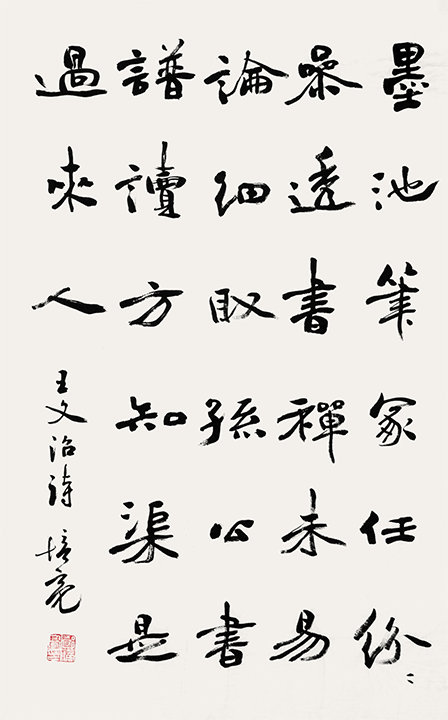 墨池筆冢任紛々
參透書禪未易
論細取孫公書
譜讀方知渠是
過來人
王文治詩 培亮